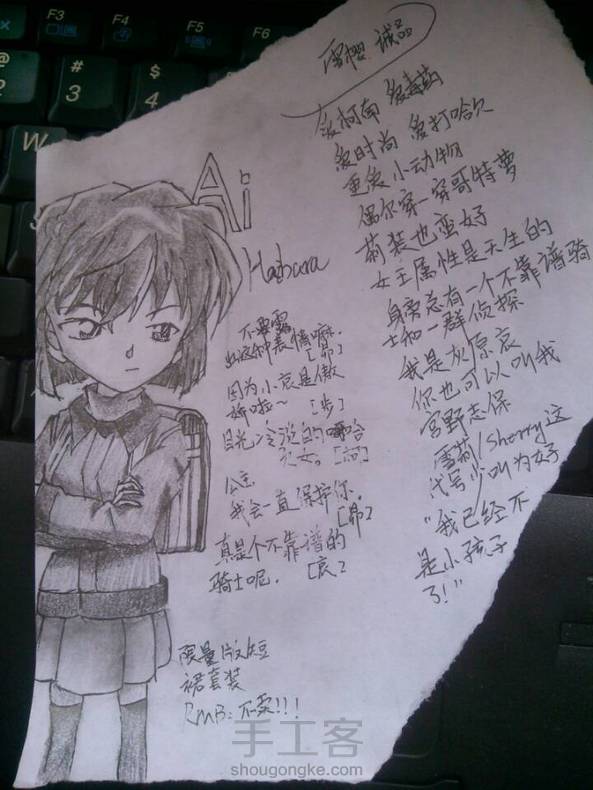 F3
F4
F5
@
2
#
3
$
4
W
S
雪樱 诚品
爱柯南 爱毒药
爱时尚 爱打哈欠
重爱小动物
偶尔穿一穿哥特萝
莉装也蛮好
女王属性是天生的
身旁总有一个不靠谱骑
士和一群侦探
我是灰原哀
你也可以叫我
宫野志保
雪莉/Sherry这
代号少叫为好
"我已经不
是小孩子
了!"
Ai
Haibara
不要露
出这种表情嘛.
因为小哀是傲
娇啦~ [步]
目光冷淡的哈
欠女。
公主
我会一直保护你.
真是个不靠谱的
骑士呢. [哀]
限量版短
裙套装
RMB:不卖!!!
手工客
shougongke.com